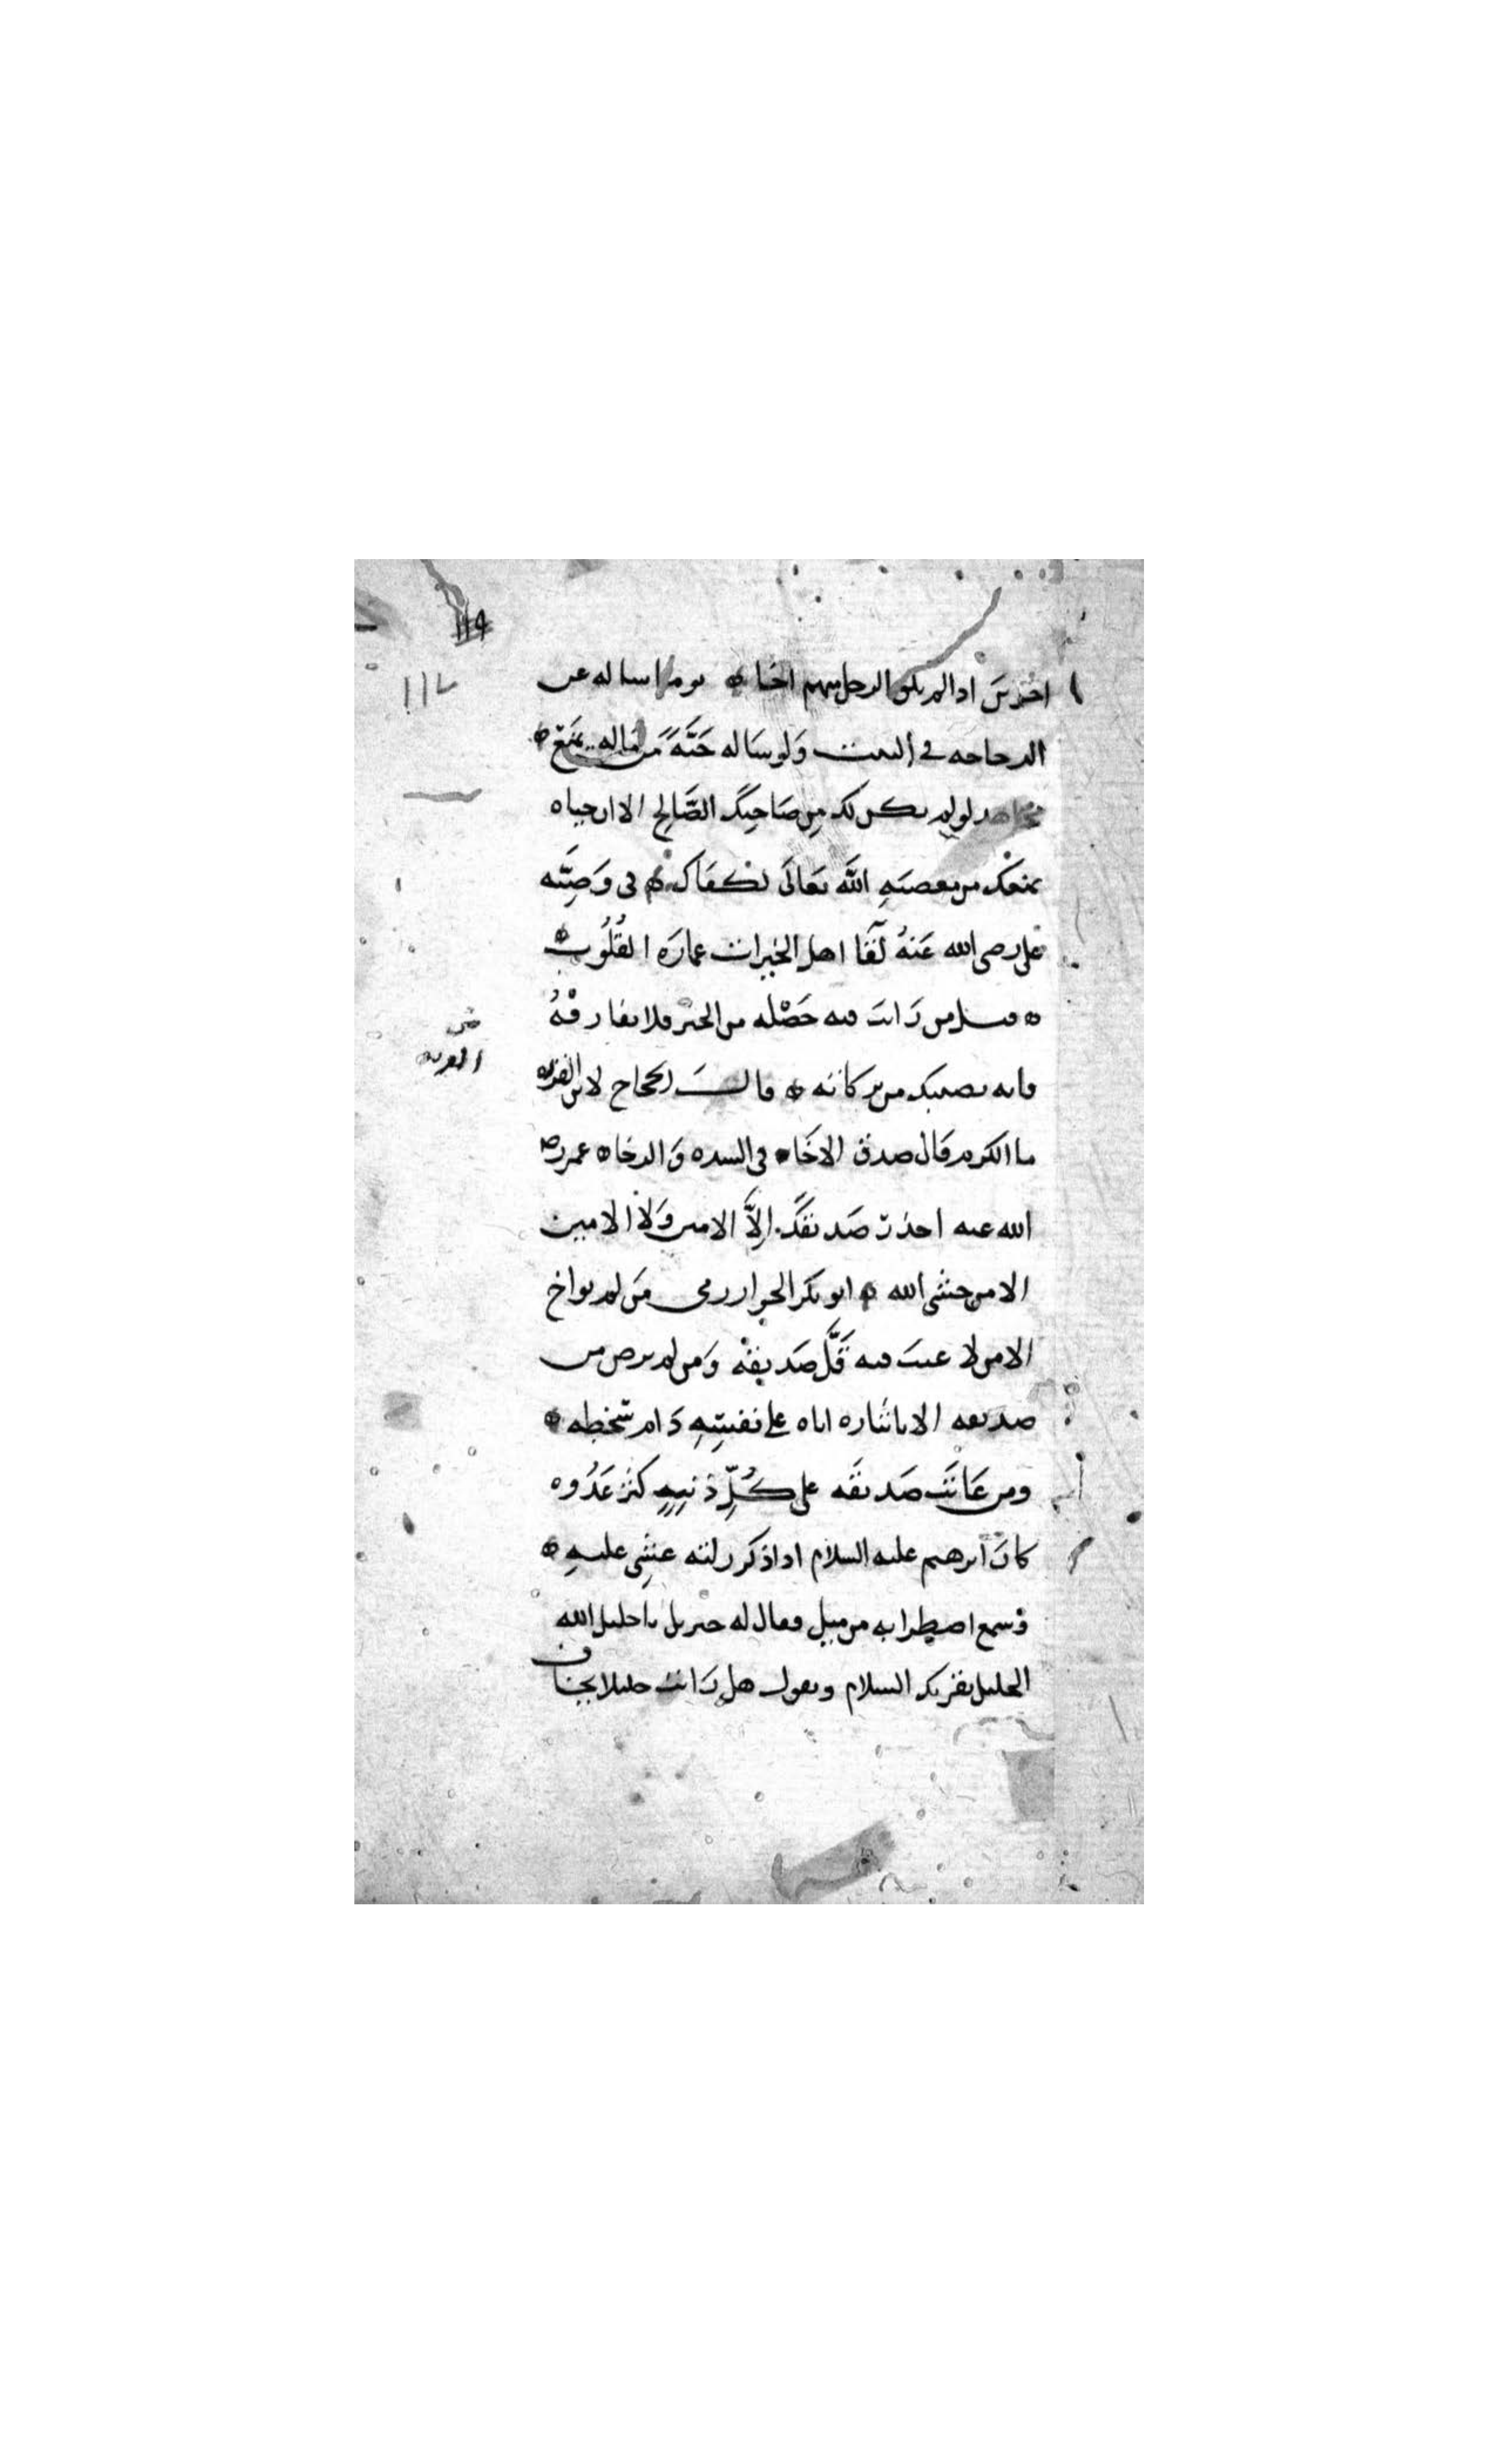 ١١٩
١١٢
اخرين اذا لم يلق الرجل منهم اخاه يوما ساله عن
الدجاجه في البيت ولو ساله حبة من ماله يمنع
مجاهد لو لم يكن لك من صاحبك الصالح الا ان حياه
يمنعك من معصية الله تعالى لكفاك في وصية
على رضى الله عنه لقا اهل الخيرات عماره القلوب
قيل من رايت فيه خصله من الخير فلا تفارقه
فانه يصيبك من بركاته قال الحجاج لابن القريه
ما الكرم قال صدق الاخاء في الشده والرخاء عمر رضي
الله عنه احذر صديقك الا الامين ولا الامين
الا من خشى الله ابو بكر الخوارزمى من لم يواخ
الا من لا عيب فيه قل صديقه ومن لم يرض من
صديقه الا بايثاره اياه على نفسه دام سخطه
ومن عاتب صديقه على كل ذنب كثر عدوه
كان ابرهيم عليه السلام اذا ذكر زلته غشى عليه
وسمع اضطرابه من ميل فقال له جبريل يا خليل الله
الجليل يقريك السلام ويقول هل رايت خليلا يخاف